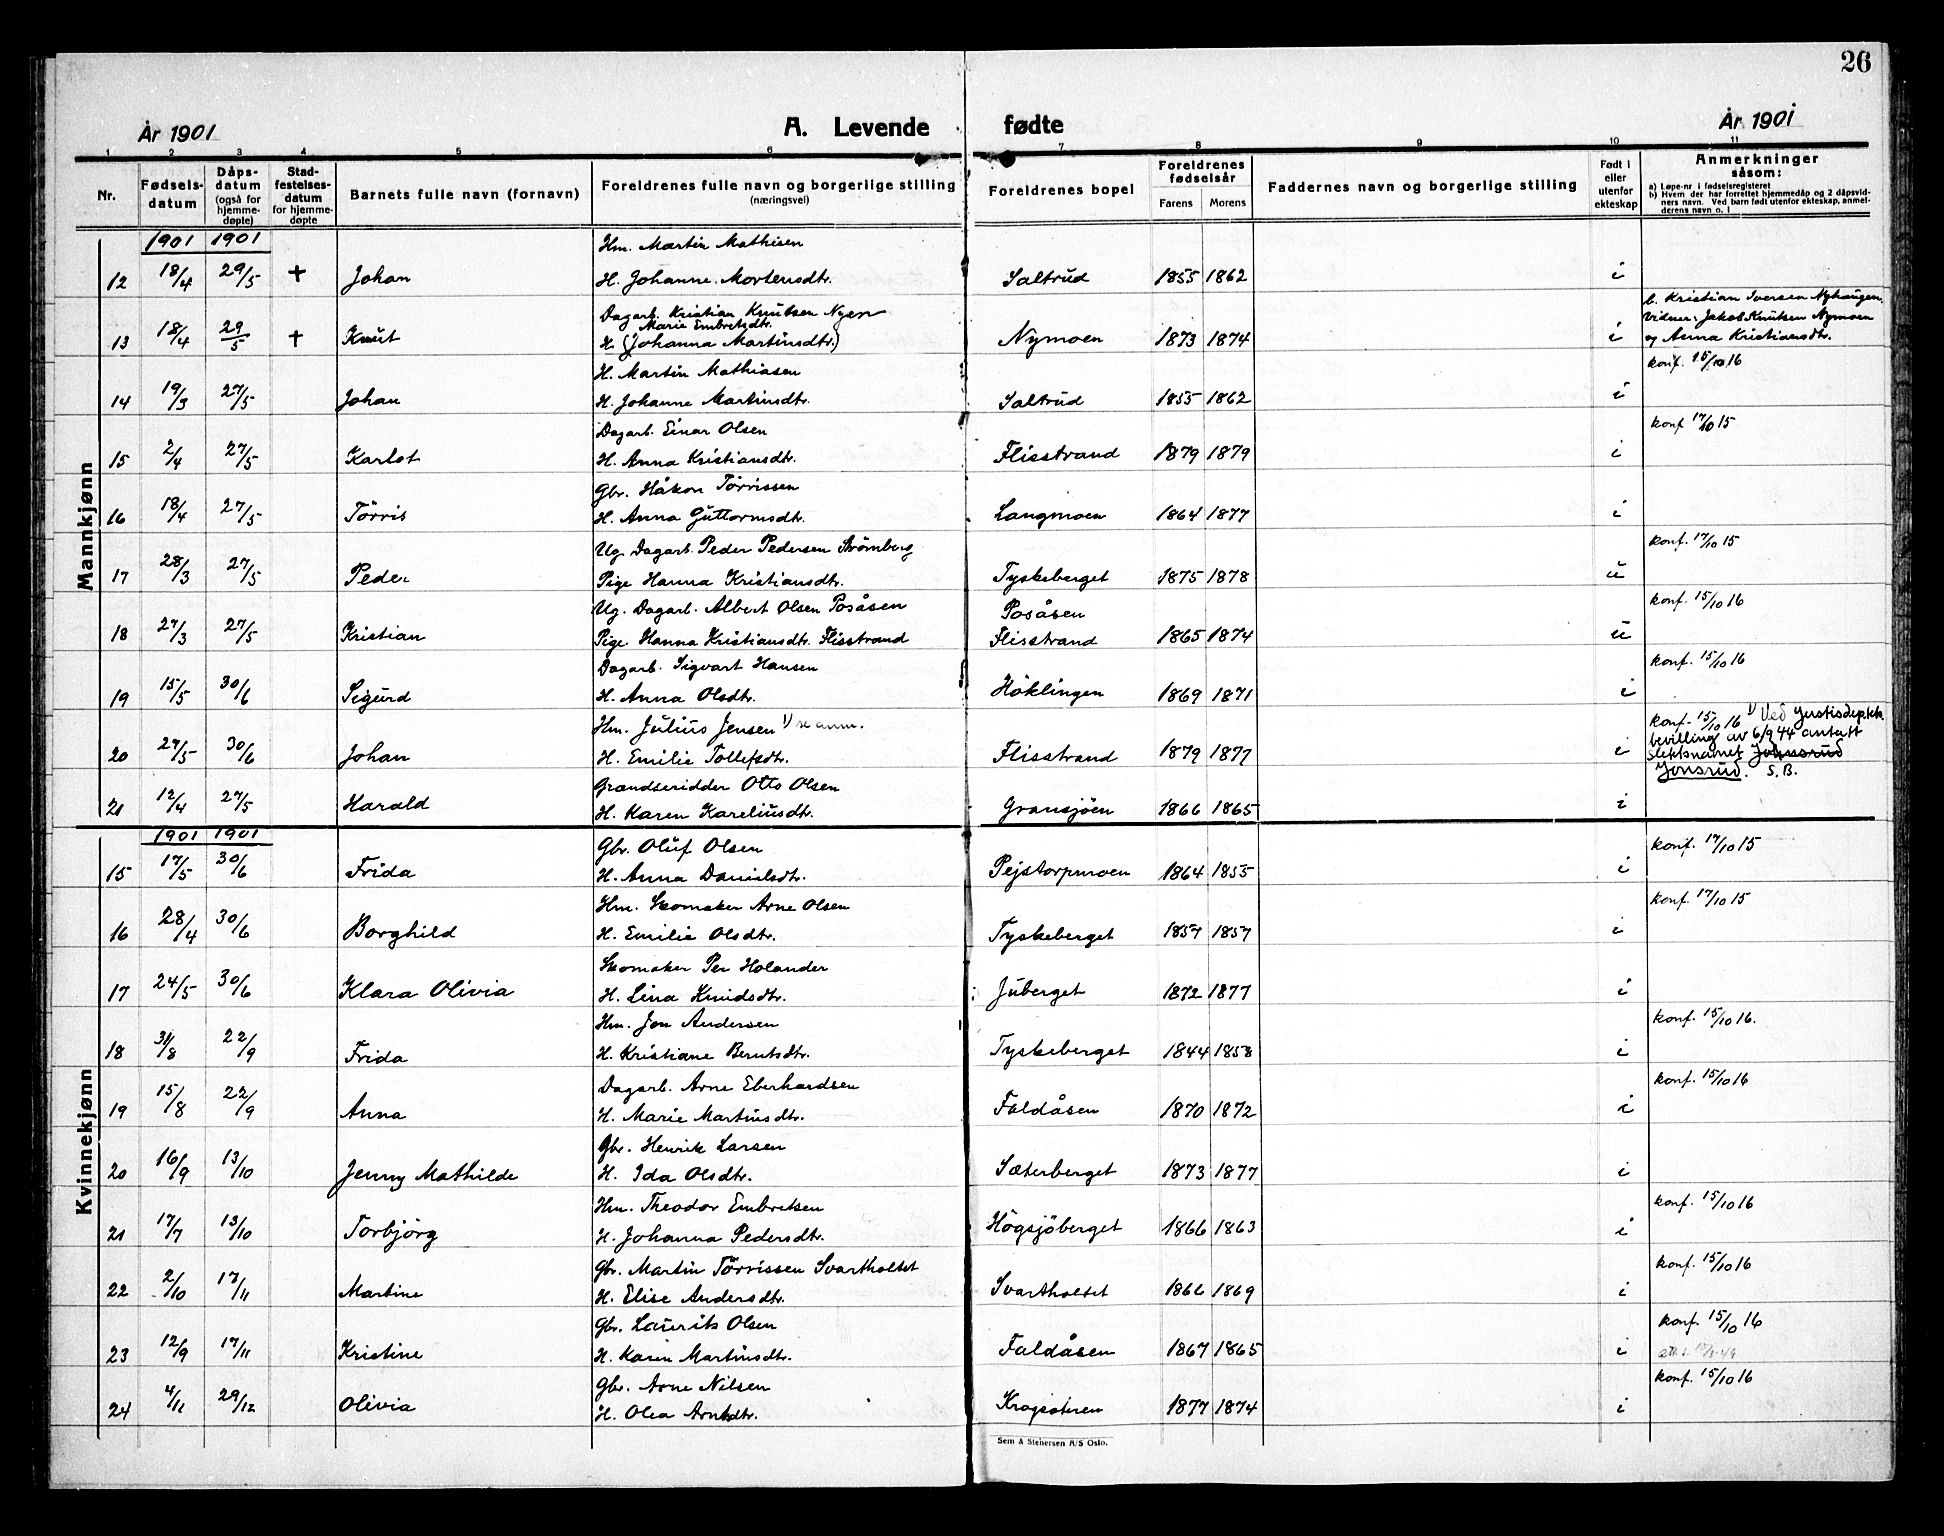 26
År 1901
A. Levende fødte
År 1901
1 2 3 4 5 6 7 8 9 10 11
Nr.
Fødsels-
datum
Dåps-
datum
(også for
hjemme-
døpte)
Stad-
festelses-
datum
for hjemme-
døpte
Barnets fulle navn (fornavn)
Foreldrenes fulle navn og borgerlige stilling
(næringsvei)
Foreldrenes bopel
Foreldrenes
fødselsår
Farens Morens
Faddernes navn og borgerlige stilling
Født i
eller
utenfor
ekteskap
Anmerkninger
såsom:
a) Løpe-nr i fødselsregisteret
b) Hvem der har forrettet hjemmedåp og 2 dåpsvid-
ners navn. Ved barn født utenfor ekteskap, anmel-
derens navn o. l
Mannkjønn
1901 1901
Hm. Martin Mathisen
12 18/4 29/5 + Johan H. Johanne Mortensdtr. Saltrud 1855 1862 i
Dagarb. Kristian Knutsen Nyen
Marie Embretsdtr.
13 18/4 29/5 + Knut H. (Johanna Martinsdtr.) Nymoen 1873 1874 i
b. Kristian Iversen Nyhaugen.
Vidner: Jakob Knutsen Nymoen
og Anna Kristiansdtr.
H. Martin Mathiasen konf. 15/10 16
14 19/3 27/5 Johan H. Johanne Martinsdtr. Saltrud 1855 1862 i
Dagarb. Einar Olsen konf 17/10 15
15 2/4 27/5 Karlot H. Anna Kristiansdtr. Flisstrand 1879 1879 i
Gbr. Håkon Törrissen
16 18/4 27/5 Törris H. Anna Guttormsdtr. Langmoen 1864 1877 i
Ug. Dagarb. Peder Pedersen Strömberg konf. 17/10 15
17 28/3 27/5 Peder Pige Hanna Kristiansdtr. Tyskeberget 1875 1878 u
Ug. Dagarb. Albert Olsen Posåsen Posåsen konf. 15/10 16
18 27/3 27/5 Kristian Pige Hanna Kristiansdtr. Flisstrand Flisstrand 1865 1874 u
Dagarb. Sigvart Hansen konf. 15/10 16
19 15/5 30/6 Sigurd H. Anna Olsdtr. Höklingen 1869 1871 i
Hm. Julius Jensen 1) se anm.
20 27/5 30/6 Johan H. Emilie Tollefsdtr. Flisstrand 1879 1877 i
konf. 15/10 16 1) Ved Justisdep.tets
bevilling av 6/9 44 antatt
slektsnavnet Johnsrud
Jonsrud. S.B.
Grandseridder Otto Olsen
21 12/4 27/5 Harald H. Karen Kareliusdtr. Gransjöen 1866 1865 i
Kvinnekjønn
1901 1901
Gbr. Oluf Olsen konf. 17/10 15
15 17/5 30/6 Frida H. Anna Danielsdtr. Pejstorpmoen 1864 1855 i
Hm. Skomaker Arne Olsen konf. 17/10 15
16 28/4 30/6 Borghild H. Emilie Olsdtr. Tyskeberget 1857 1857 i
Skomaker Per Holander
17 24/5 30/6 Klara Olivia H. Lina Knudsdtr. Juberget 1872 1877 i
Hm. Jon Andersen konf. 15/10 16.
18 31/8 22/9 Frida H. Kristiane Berntsdtr. Tyskeberget 1844 1858 i
Dagarb. Arne Eberhardsen konf. 15/10 16
19 15/8 22/9 Anna H. Marie Martinsdtr. Faldåsen 1870 1872 i
Gbr. Henrik Larsen
20 16/9 13/10 Jenny Mathilde H. Ida Olsdtr. Sæterberget 1873 1877 i
Hm. Theodor Embretsen konf. 15/10 16
21 17/7 13/10 Torbjörg H. Johanna Pedersdtr. Högsjöberget 1866 1863 i
Gbr. Martin Törrissen Svartholtet konf. 15/10 16
22 2/10 17/11 Martine H. Elise Andersdtr. Svartholtet 1866 1869 i
Gbr. Laurits Olsen konf. 15/10 16
23 12/9 17/11 Kristine H. Karen Martinsdtr. Faldåsen 1867 1865 i
Gbr. Arne Nilsen konf. 15/10 16
24 4/11 29/12 Olivia H. Olea Arntsdtr. Krogsæteren 1877 1874 i
Sem & Stenersen A/S Oslo.